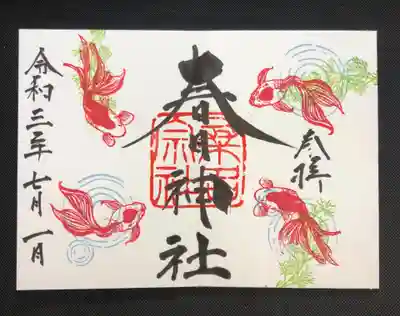 奉拝
春日神社
令和三年七月一日